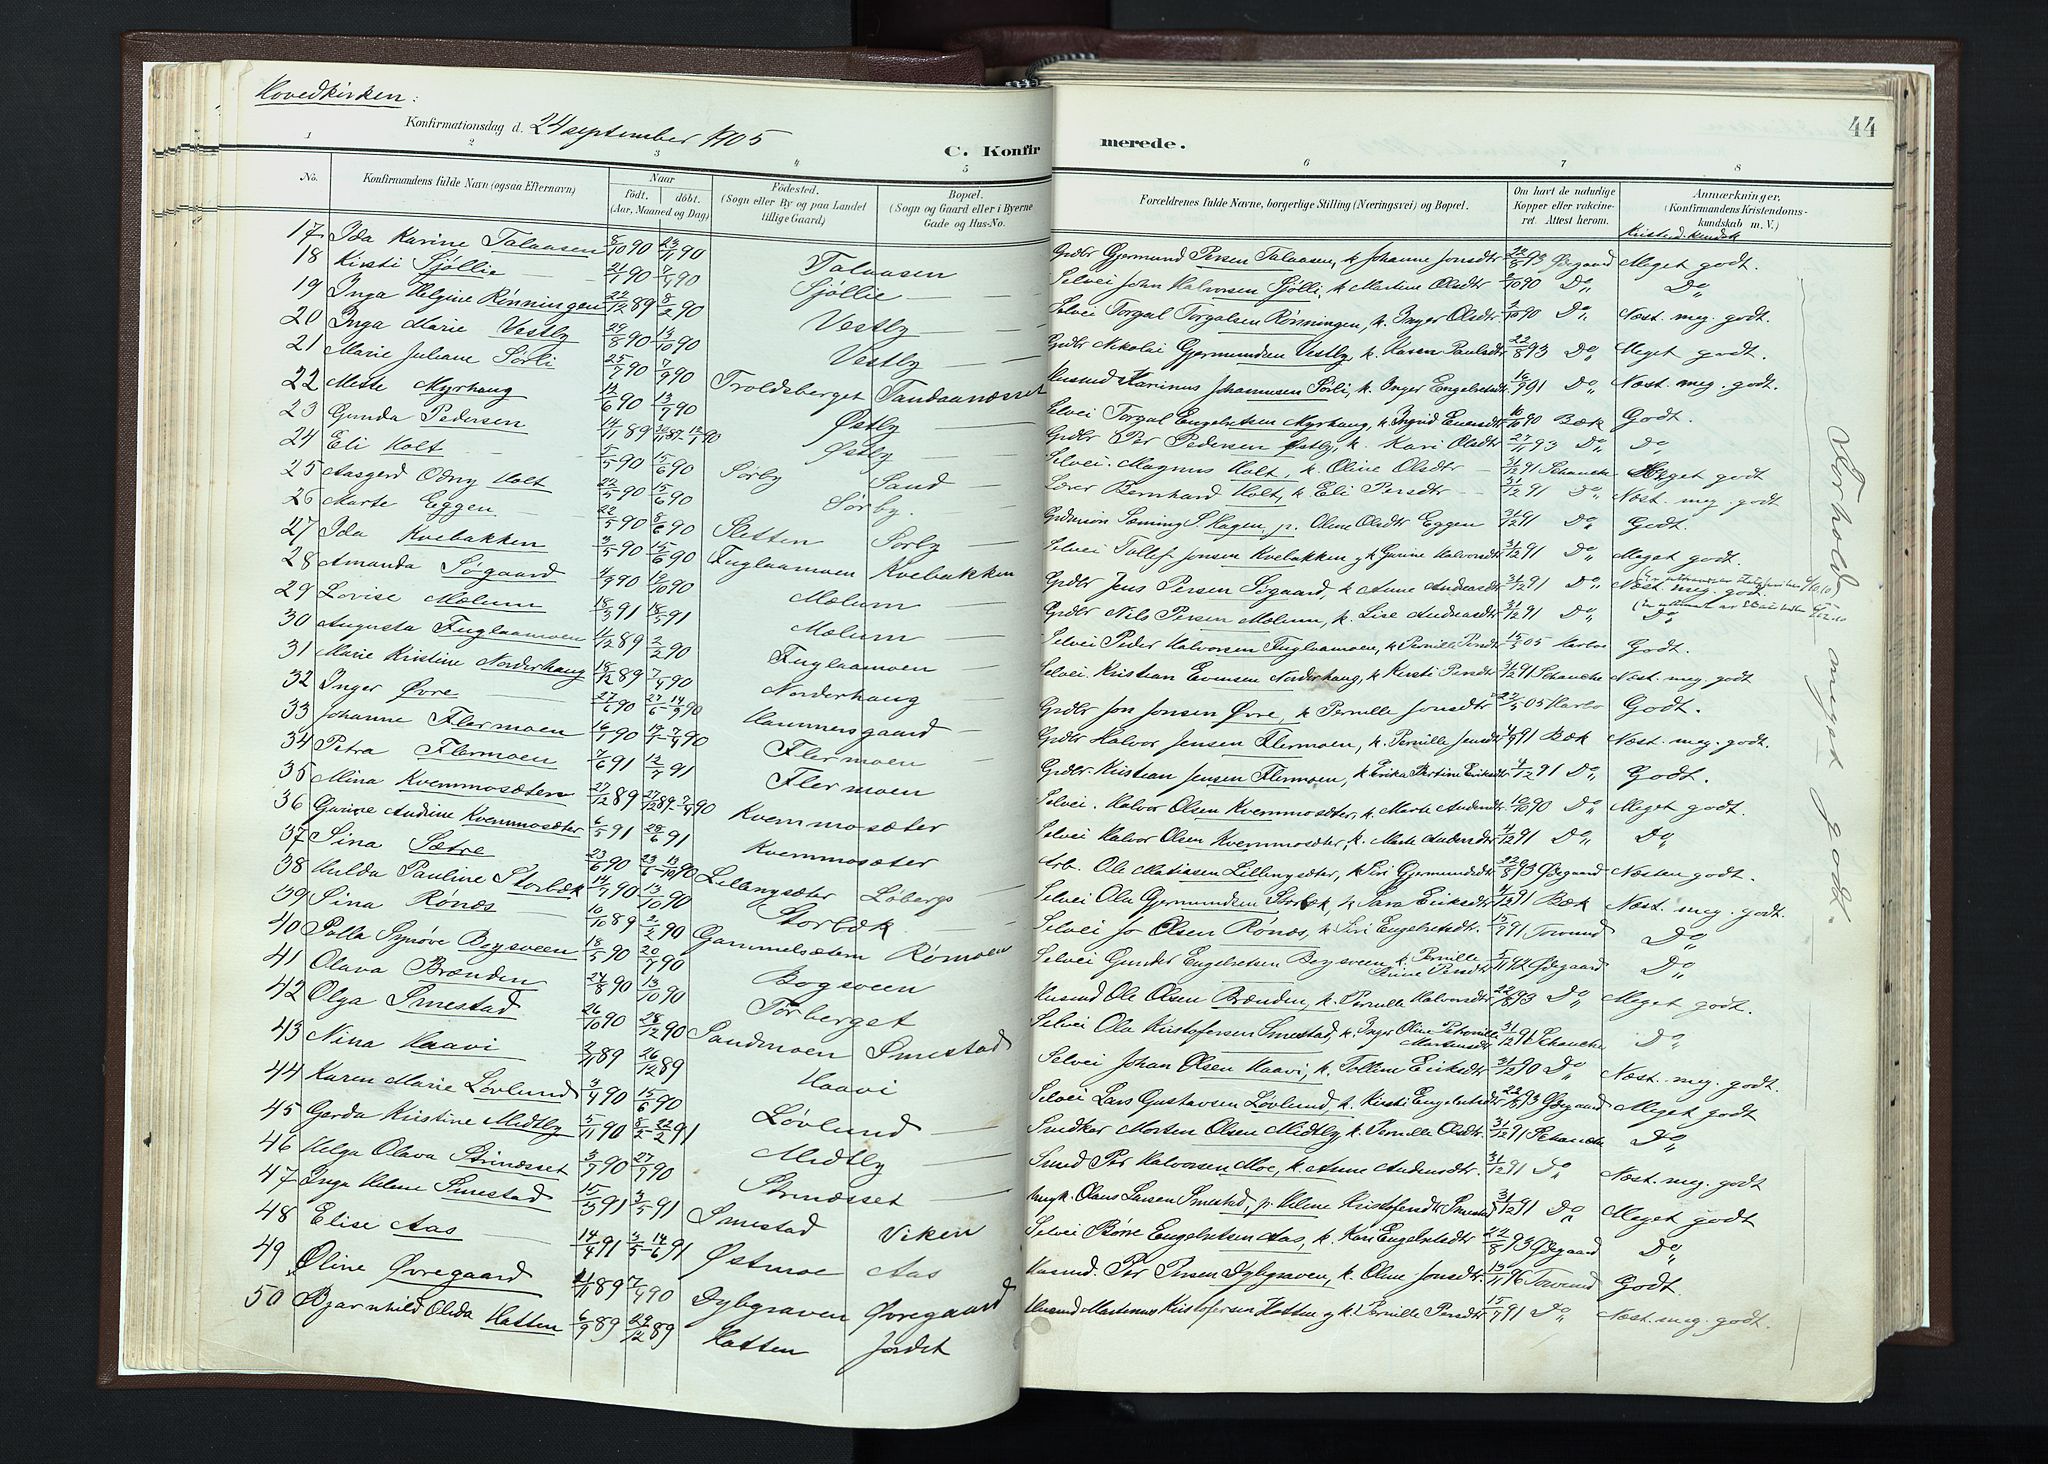 Hovedkirken:
Konfirmationsdag d. 24 september 1905
C. Konfirmerede.
44
1 2 3 4 5 6 7 8
No. Konfirmandens fulde Navn (ogsaa Efternavn) Naar født. døbt. (Aar, Maaned og Dag) Fødested. (Sogn eller By og paa Landet tillige Gaard) Bopæl. (Sogn og Gaard eller i Byerne Gade og Hus-No. Forældrenes fulde Navne, borgerlige Stilling (Næringsvei) og Bopæl. Om havt de naturlige Kopper eller vakcineret. Attest herom. Anmærkninger, (Konfirmandens Kristendomskundskab m. V.)
17 Ida Karine Talaasen 8/10 90 23/11 90 Talaasen Grdbr Gjermund Persen Talaasen, k Johanne Jonsdtr 22/8 93 Ødegaard Meget godt.
18 Kirsti Sjøllie 21/1 90 7/4 90 Sjøllie Selvei John Halvorsen Sjølli, k Martine Olsdtr 2/10 90 Do Do
19 Inga Helgine Rønningen 27/12 89 8/2 90 Selvei Torgal Torgalsen Rønningen, k. Inger Olsdtr 2/10 90 Do Næst. meg. godt.
20 Inga Marie Vestby 29/8 90 13/10 90 Vestby Grdbr Nikolai Gjermundsen Vestby, k. Karen Paulsdtr 22/8 93 Do Meget godt.
21 Marie Juliane Sørli 25/7 90 7/9 90 Vestby Husmd Karinus Johannesen Sørli, k. Inger Engebretsdtr 16/9 91 Do Næst. meg. godt.
22 Mette Myrhaug 12/6 90 13/7 90 Troldsberget Tandaanæsset Selvei Torgal Engebretsen Myrhaug, k. Ingrid Evensdtr 16/10 90 Bæk Godt.
23 Gunda Pedersen 14/11 89 Østby Grdbr Per Pedersen Østby, k. Kari Olsdtr 27/11 93 Do Do
24 Eli Holt 5/5 90 15/6 90 Østby Selvei. Magnus Holt, k. Oline Olsdtr 31/12 91 Schanche Meget godt
25 Aasgerd Odny Holt 22/5 90 15/6 90 Sørby Sand Lærer Bernhard Holt, k Eli Persdtr 31/12 91 Do Næst. meg. godt
26 Marte Eggen 22/5 90 8/6 90 Sørby. Sæming S. Hagen, p. Oline Olsdtr Eggen 31/12 91 Do Godt.
27 Ida Kvebakken 3/5 90 15/6 90 Sletten Sørby Selvei Tollef Jonsen Kvebakken og k Gurine Halvorsdtr 31/12 91 Do Meget godt.
28 Amanda Søgaard 4/9 90 12/10 90 Fuglaamoen Kvebakken Grdbr Jens Persen Søgaard, k Anne Andreasdtr 31/12 91 Do Næst. meg. god.
29 Lovise Mælum 18/3 91 18/5 91 Mælum Grdbr Nils Persen Mælum, k. Lise Andreasdtr 31/12 91 Do Do
30 Augusta Fuglaamoen 11/12 89 2/2 90 Mælum Selvei Peder Halvorsen Fuglaamoen, k Pernille Persdtr 15/5 05 Harbo Godt.
31 Marie Kristine Norderhaug 18/12 89 7/4 90 Fuglaamoen Selvei. Kristian Evensen Norderhaug, k Kirsti Persdtr 31/12 91 Schanche Næst. meg. godt
32 Inger Øvre 27/6 90 27/6-14/9 90 Norderhaug Grdbr Jon Jonsen Øvre, k Pernille Jonsdtr 22/5 05 Harbo Godt.
33 Johanne Flermoen 16/1 90 17/1-7/4 90 Hammersgaard Grdbr Halvor Jensen Flermoen, k. Pernille Jonsdtr 4/9 91 Bæk Næst. meg. godt.
34 Petra Flermoen 7/6 91 12/7 91 Flermoen Grdbr. Kristian Jensen Flermoen, k Erika Bertine Eriksdtr 4/12 91 Do Godt.
35 Mina Kvemmosæter 27/12 89 27/12 89-7/4 90 Flermoen Selvei. Halvor Olsen Kvemmosæter, k. Marte Andersdtr 12/10 90 Do Meget godt.
36 Gurine Andrine Kvemmosæter 6/5 91 29/6 91 Kvemmosæter Selvei Halvor Olsen Kvemmosæter k. Marte Andersdtr 4/12 91 Do Do
37 Sina Sætre 23/6 90 23/6 13/10 90 Kvemmosæter Arb. Ole Matiasen Lillengsæter, k Siri Gjermundsdtr 22/8 93 Ødegaard Næsten godt.
38 Hulda Pauline Storbæk 14/7 90 13/10 90 Lillengsæter Løbergs Selvei Ola Gjermundsen Storbæk, k Sara Eriksdtr 4/12 91 Bæk Næst. meg. godt.
39 Sina Rønæs 10/10 89 2/2 90 Storbæk Selvei Jo Olsen Rønæs, k Siri Engebretsdtr. 15/7 91 Tovsrud Do
40 Palla Synøve Bergsveen 18/5 90 20/7 90 Gammelsætern Rømoen Selvei Gunder Engebretsen Bergsveen, k. Pernille Persdtr 5/11 92 Ødegaard Do
41 Olava Brænden 24/8 90 13/10 90 Bogsveen Husmd Ole Olsen Brænden, k. Pernille Halvorsdtr 22/8 93 Do Meget godt.
42 Olga Smestad 26/10 90 28/12 90 Torberget Selvei Ola Kristofersen Smestad, k. Inger Oline Petronille Martinsdtr 31/12 91 Schanche Do
43 Nina Haavi 2/11 89 26/12 89 Sandmoen Smestad Selvei Johan Olsen Haavi, k. Tolline Eriksdtr 31/12 90 Do Næst. meg. godt.
44 Karen Marie Løvlund 3/4 90 15/6 90 Haavi Selvei Lars Gustavsen Løvlund, k. Kirsti Engebretsdtr 22/8 93 Ødegaard Meget godt
45 Gerda Kristine Midtby 5/11 90 8/2-22/2 91 Løvlund Snedker Morten Olsen Midtby k. Pernille Olsdtr. 31/12 91 Schanche Do
46 Helga Olava Strinæsset 3/7 90 27/7 90 Midtby Smed Per Halvorsen Moe, k. Anne Andersdtr. 31/12 91 Do Næst. meg. godt
47 Inga Helene Smestad 15/3 91 3/5 91 Strinæsset Ungk. Olaus Larsen Smestad, p. Helene Kristofersdtr Smestad 31/12 91 Do Meget godt
48 Elise Aas 14/4 91 3/5-14/6 91 Smestad Viken Selvei Børre Engebretsen Aas, k. Kari Engebretsdtr 22/8 93 Ødegaard Do
49 Oline Øvregaard 21/11 89 7/4 90 Østmoe Aas Husmd. Per Persen Dybgraven, k. Oline Jonsdtr. 15/11 96 Tovsrud Godt.
50 Bjarnhild Olida Hatten 6/9 89 29/12 89 Dybgraven Øvregaard Husmd Martinus Kristofersen Hatten og k. Pernille Persdtr 15/7 91 Do Næst. meg. godt.
Hatten Jordet
Forhold: meget godt.